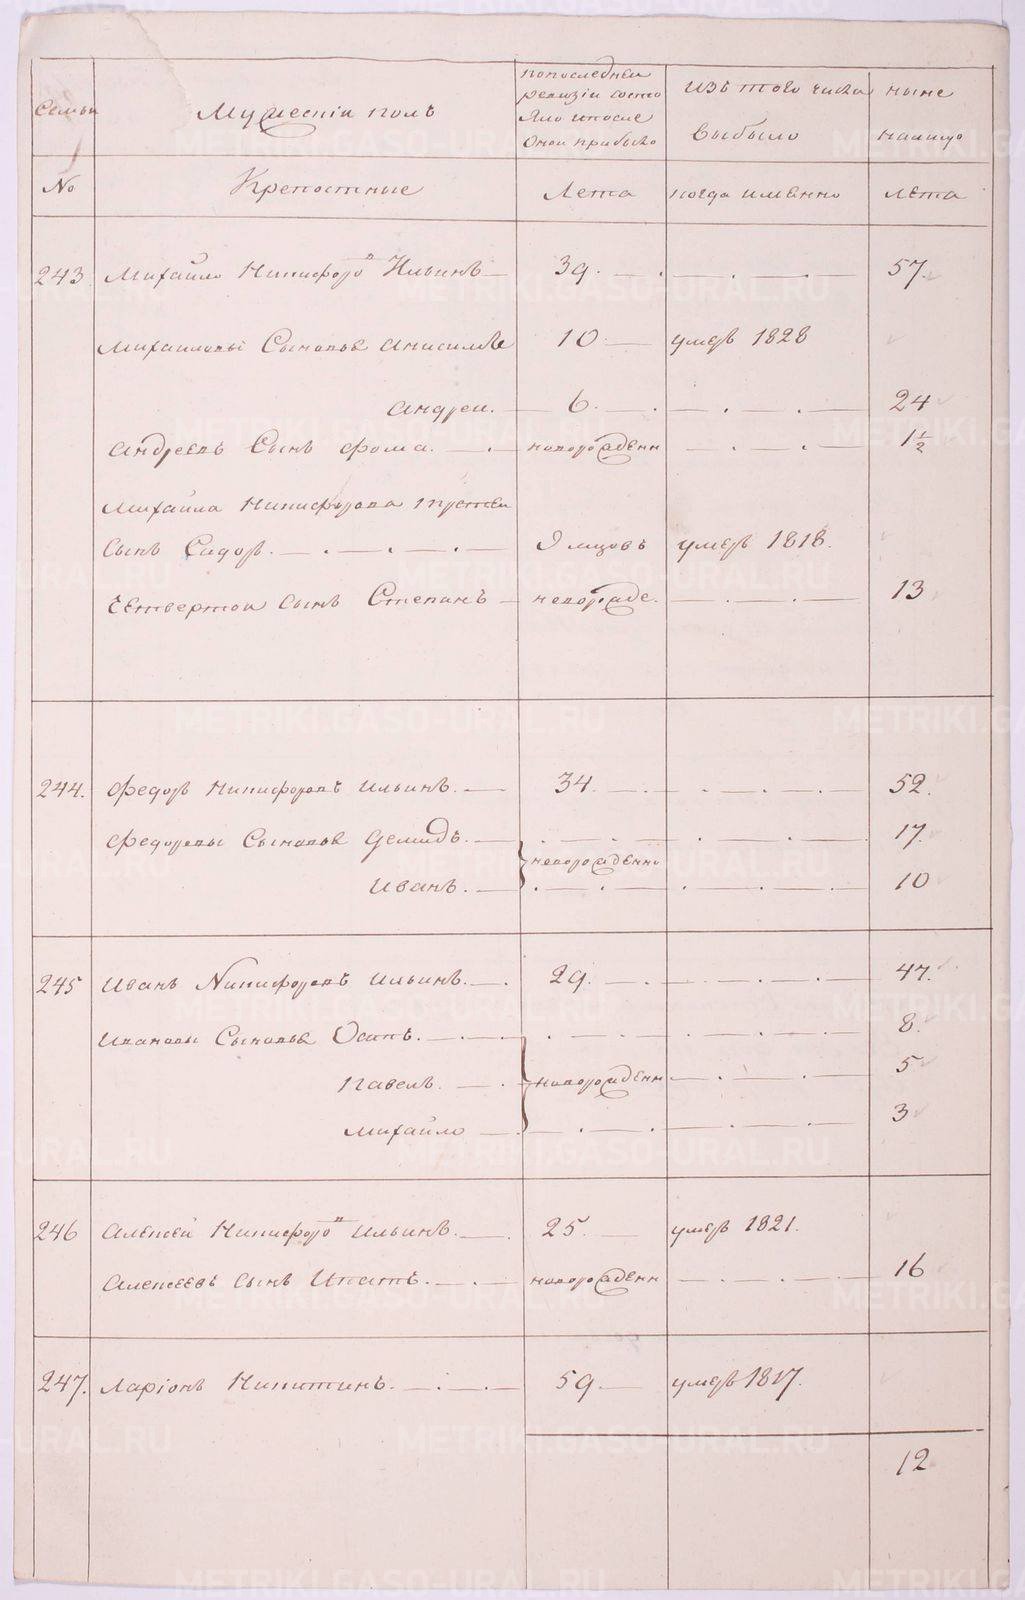 семьи
Мужескiи полъ
попоследнеи
ревизiи состо
яло ипосле
Онои прибыло
изъ того числа
выбыло
ныне
налицо
No
Крепостные
Лета
когда имянно
лета
243 Михайло Никифоро въ Ильинъ 39. 57.
Михаиловы Сыновья анисимъ 10 умеръ 1828
андреи. 6. 24
андреевъ Сынъ фома. новорожденн 1 1/2
Михайла Никифорова третеи
сынъ Сидоръ. 9 мцовъ умеръ 1818.
четвертои сынъ Степанъ новорожде. 13
244. федоръ никифоровъ ильинъ. 34. 52.
федоровы Сыновья демидъ. 17.
новорожденно
иванъ. 10
245 иванъ Никифоровъ ильинъ. 29. 47.
ивановы Сыновья Осипъ. 8.
павелъ. новорожденн 5
михайло 3
246 алексеи Никифоро въ ильинъ. 25 умеръ 1821.
алексеевъ сынъ Ипатъ. новорожденн 16
247. ларiонъ Никитинъ. 59 умеръ 1817.
12
METRIKI.GASO-URAL.RU